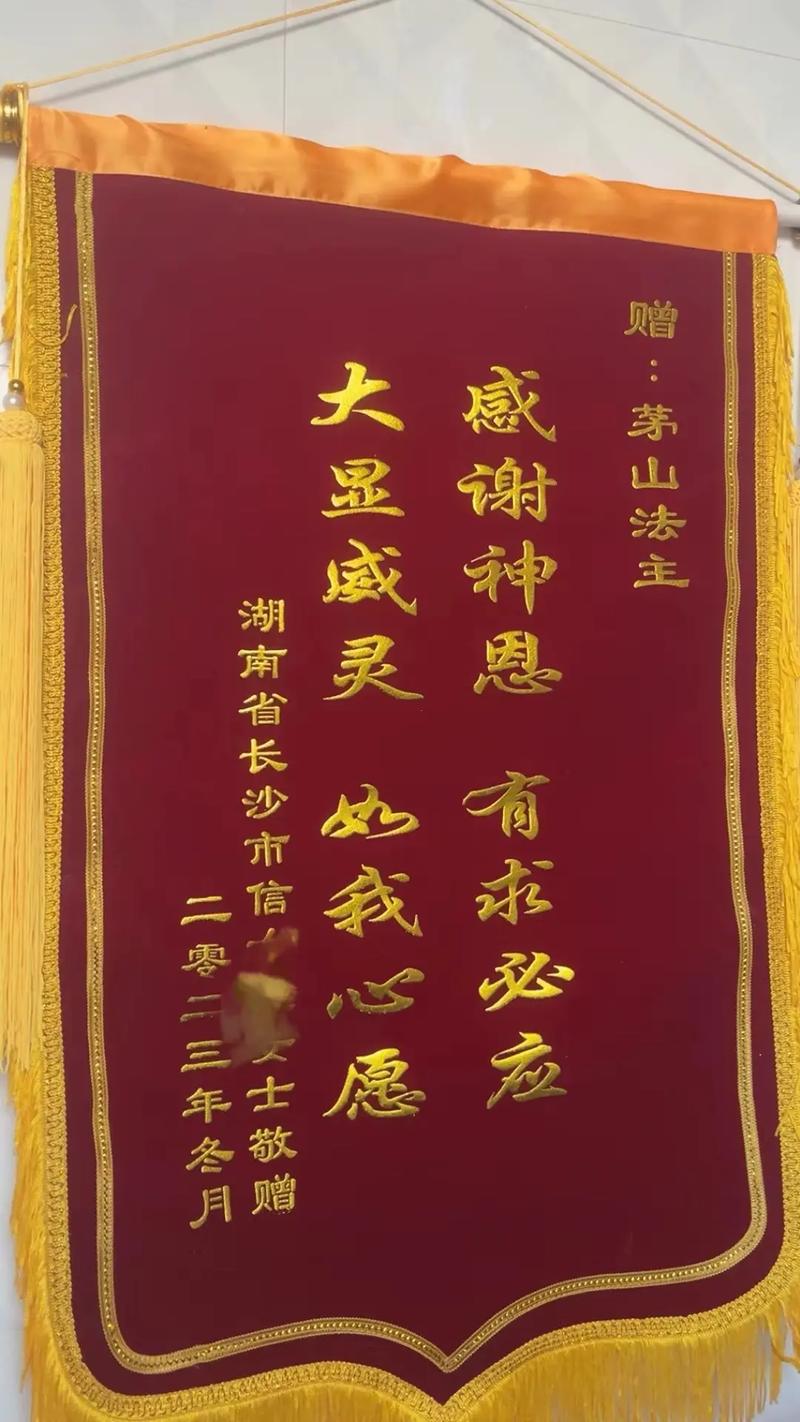 赠：茅山法主
感谢神恩 有求必应
大显威灵 如我心愿
湖南省长沙市信士敬赠
二零二三年冬月